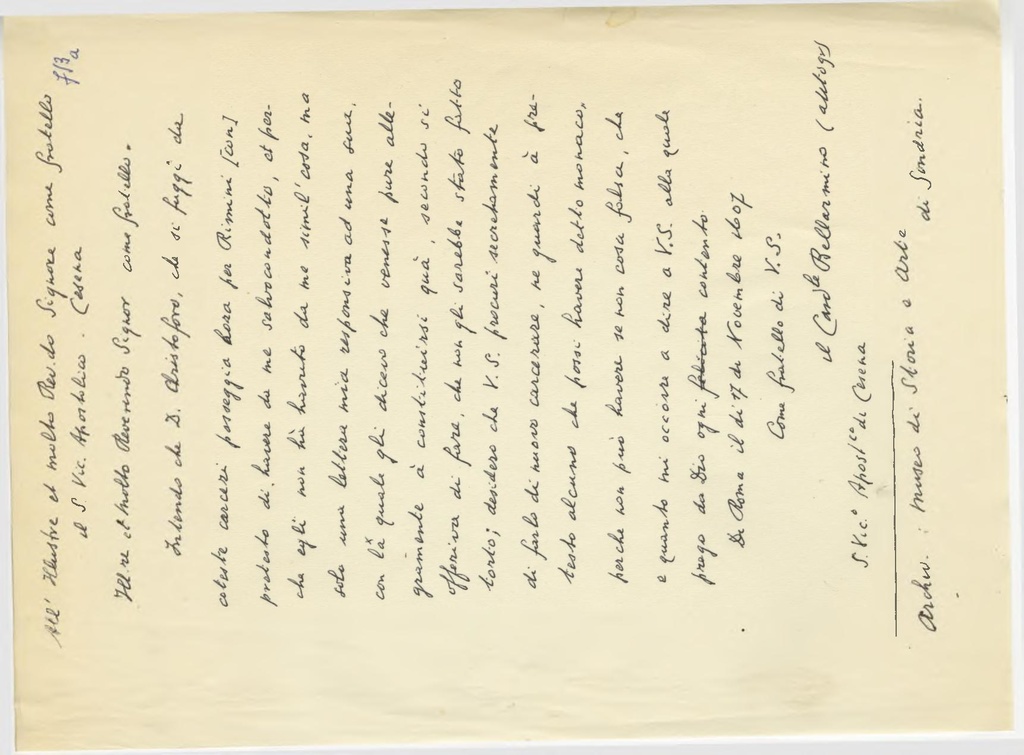 All' Illustre et molto Rev.do Signore come fratello
713a
il S. Vic. Apostolico. Cesena
Ill.re et Molto Reverendo Signor come fratello.
Intendo che D. Cristoforo, che si fuggì da
coteste carceri passeggia hora per Rimini [con]
pretesto di havere da me salvocondotto, et per-
che egli non hà havuto da me simil' cosa, ma
solo una lettera mia responsiva ad una sua,
con la quale gli dicevo che venesse pure alle-
gramente à constituirsi quà, secondo si
offeriva di fare, che non gli sarebbe stato fatto
torto; desidero che V. S. procuri secretamente
di farlo di nuovo carcerare, ne guardi à pre-
testo alcuno che possi havere detto monaco,
perche non può havere se non cosa falsa, che
e quanto mi occorre a dire a V.S. alla quale
prego da Dio ogni felicita contento.
Di Roma il dì 17 di Novembre 1607
Come fratello di V. S.
il Card.le Bellarmino (autogr)
S. Vic.o Apost.co di Cesena
Archiv. : Museo di Storia e Arte
di Sondrio.